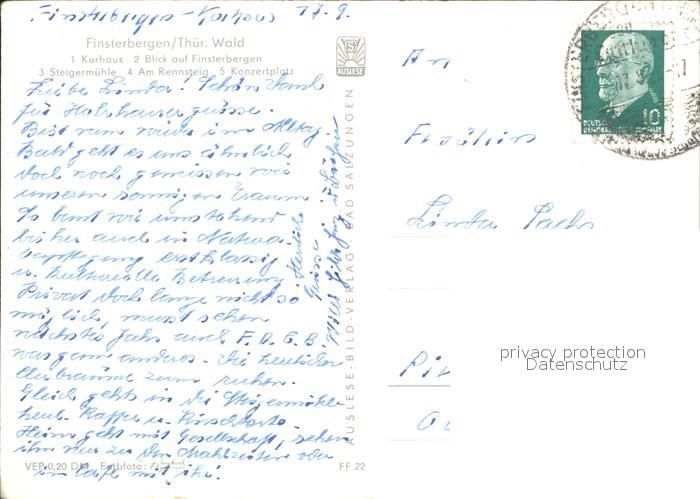 Finsterbergen-Kurhaus 17.9.
Finsterbergen/Thür. Wald
1 Kurhaus 2 Blick auf Finsterbergen
3 Steigermühle 4 Am Rennsteig 5 Konzertplatz
AUSLESE
Liebe Linda! Schön Dank
für Holzhausergrüsse.
Bist nun wieder im Alltag
Bald geht es uns ähnlich
doch noch geniessen wir
unseren sonnigen Traum
So bunt wie umstehend
bisher auch in Natura.
Verpflegung erstklassig
u. kulturelle Betreuung.
Privat doch lange nicht so
möglich, musst sehen
nächstes Jahr auch F.D.G.B.
was ganz anderes. Die
zum ruhen.
Gleich geht's in die Steigermühle
heut. Kaffee u. Kirschtorte.
Heinz geht mit Gesellschaft, sehen
ihn nur zu den Mahlzeiten oder
im Café mit ihr!
Herzliche
Grüsse
VEB 0,20 DM Farbfoto:
FF 22
AUSLESE-BILD-VERLAG, BAD SALZUNGEN
An
Fräulein
Linda Sachs
10
DEUTSCHE
DEMOKRATISCHE REPUBLIK
privacy protection
Datenschutz